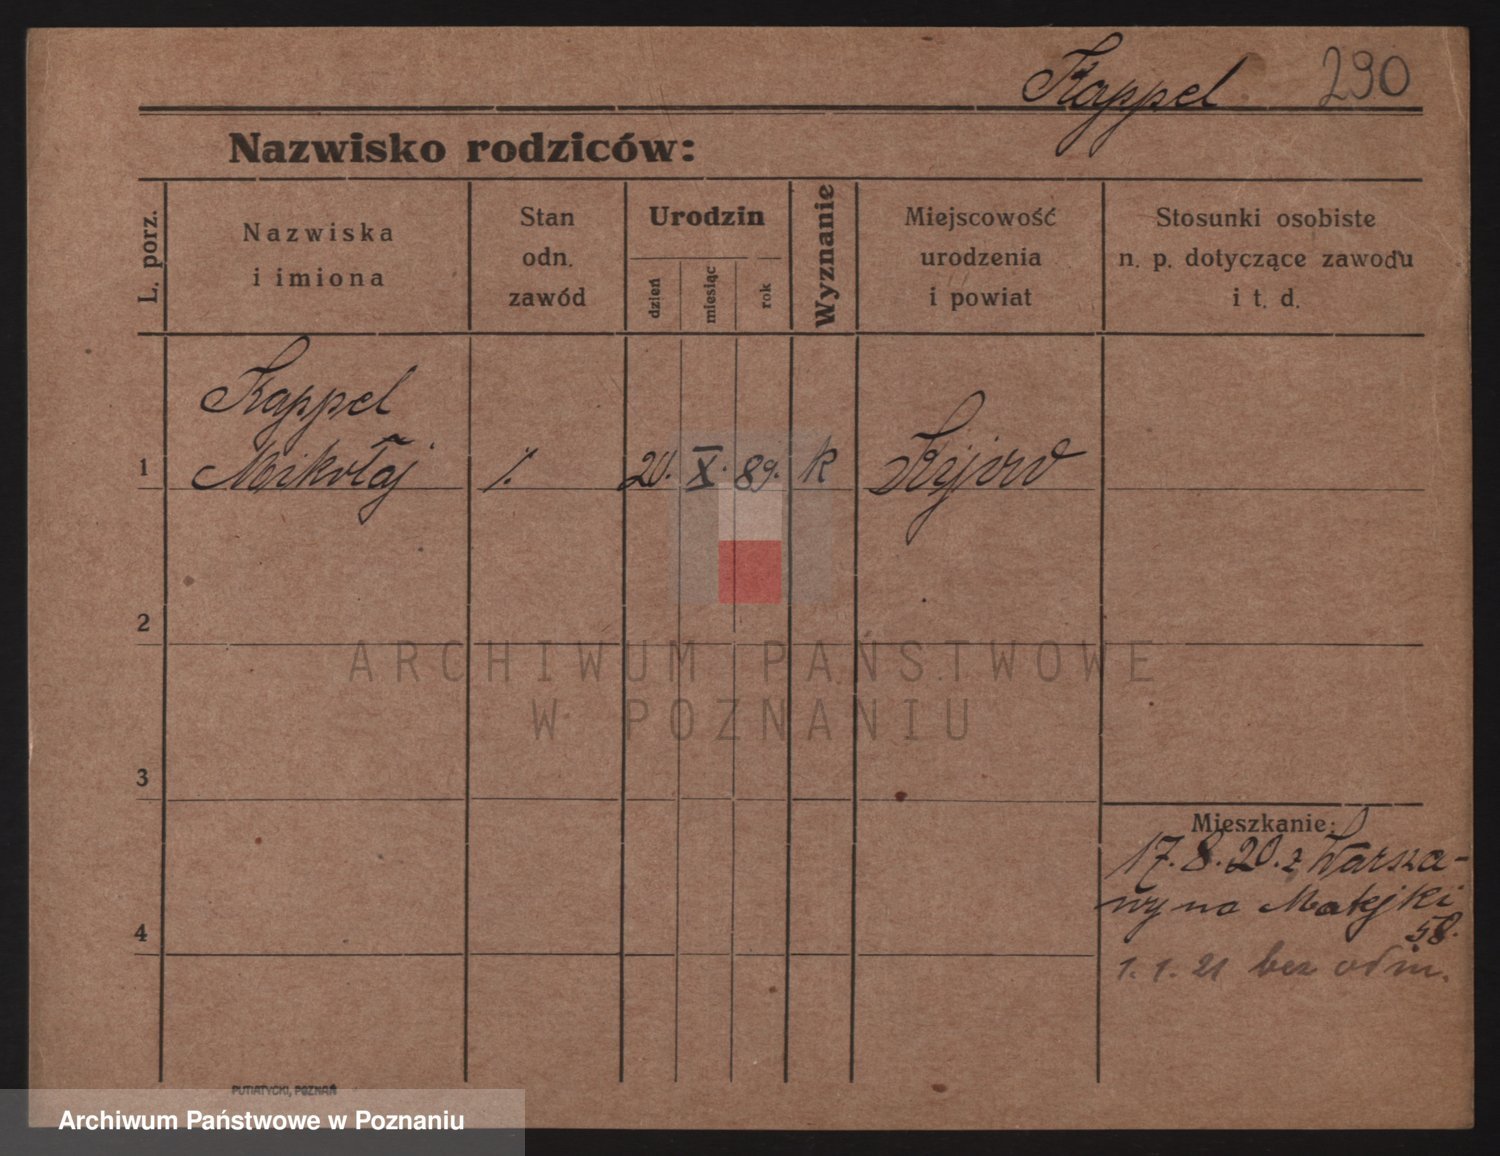 Kappel 290
Nazwisko rodziców:
L. porz.
Nazwiska
i imiona
Stan
odn.
zawód
Urodzin
dzień
miesiąc
rok
Wyznanie
Miejscowość
urodzenia
i powiat
Stosunki osobiste
n. p. dotyczące zawodu
i t. d.
Kappel
1 Mikołaj 20. X. 89. k Kijów
2
3
4
Mieszkanie:
17.8.20. z Warsza-
wy na Matejki
58.
1.1.21 bez odm.
ARCHIWUM PAŃSTWOWE
W POZNANIU
PUTIATYCKI, POZNAŃ
Archiwum Państwowe w Poznaniu